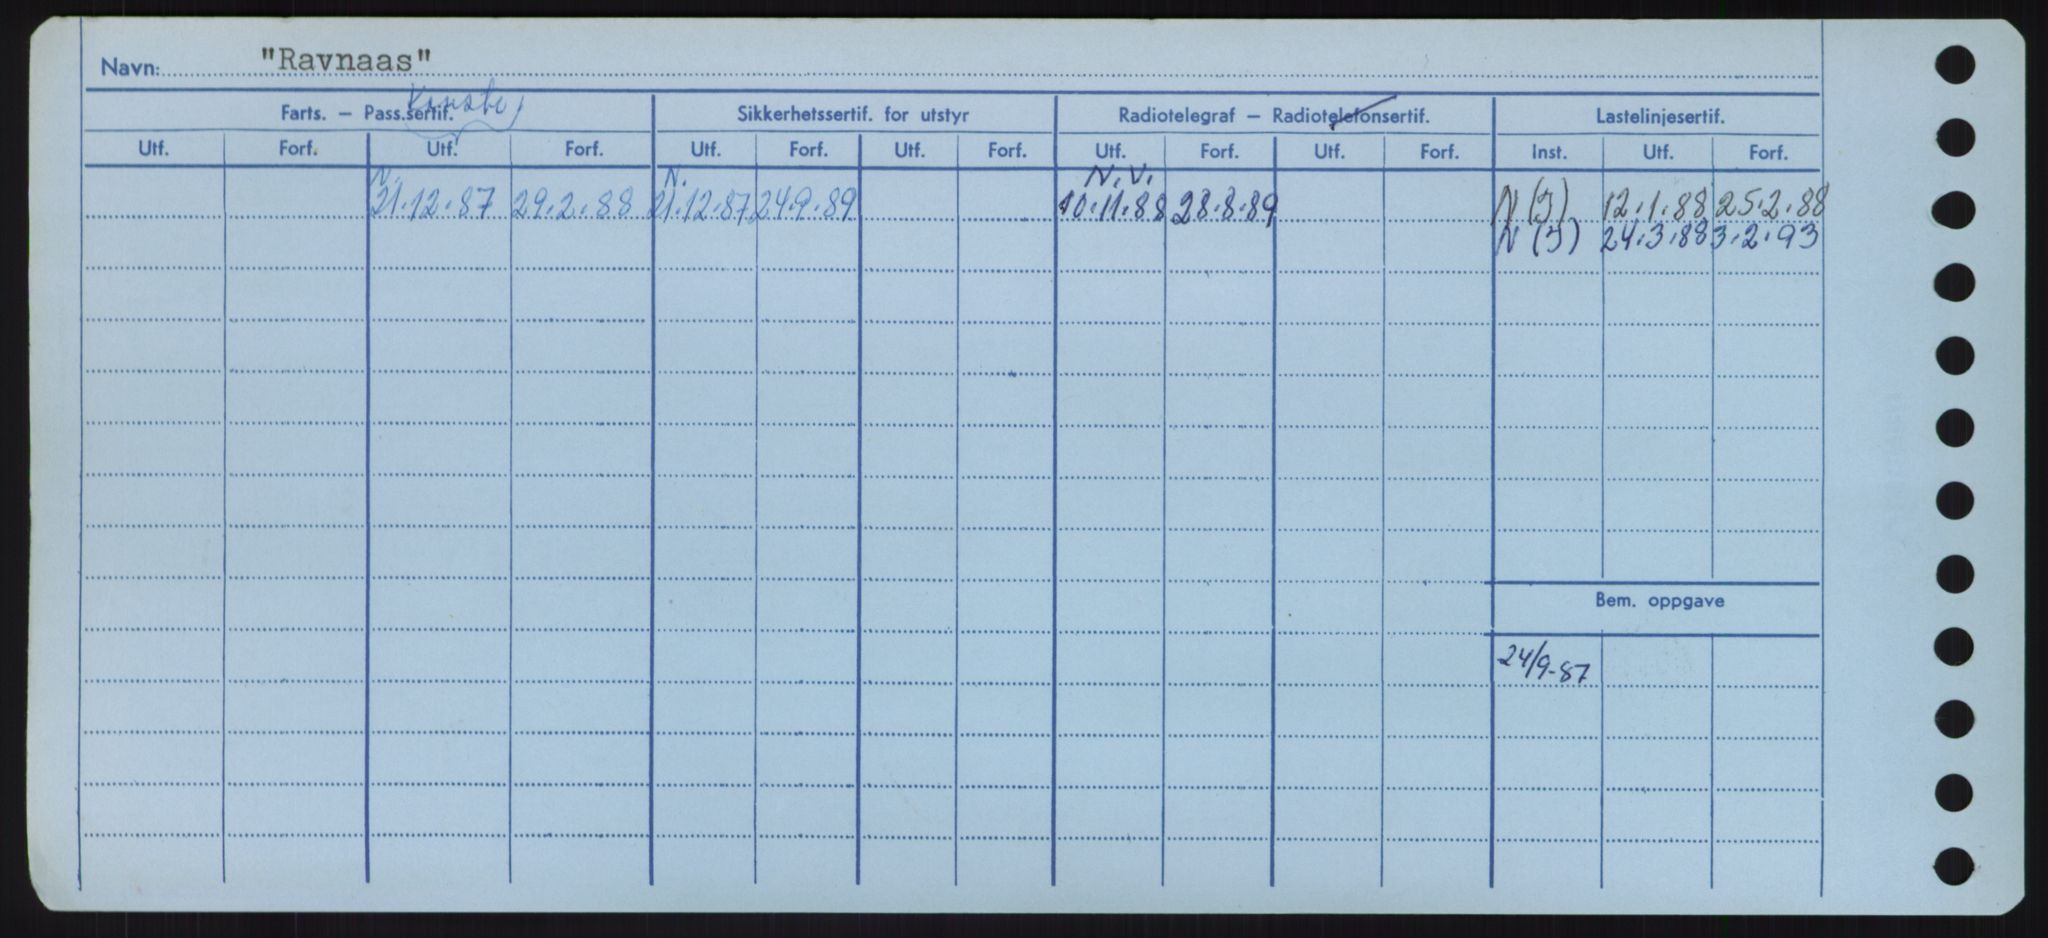 Navn: "Ravnaas"
Konstr.
Farts. — Pass.sertif. Sikkerhetssertif. for utstyr Radiotelegraf — Radiotelefonsertif. Lastelinjesertif.
Utf. Forf. Utf. Forf. Utf. Forf. Utf. Forf. Utf. Forf. Utf. Forf. Inst. Utf. Forf.
N. N. N.V.
21.12.87 29.2.88 21.12.87 24.9.89 10.11.88 28.8.89 N(J) 12.1.88 25.2.88
N(J) 24.3.88 3.2.93
Bem. oppgave
24/9-87